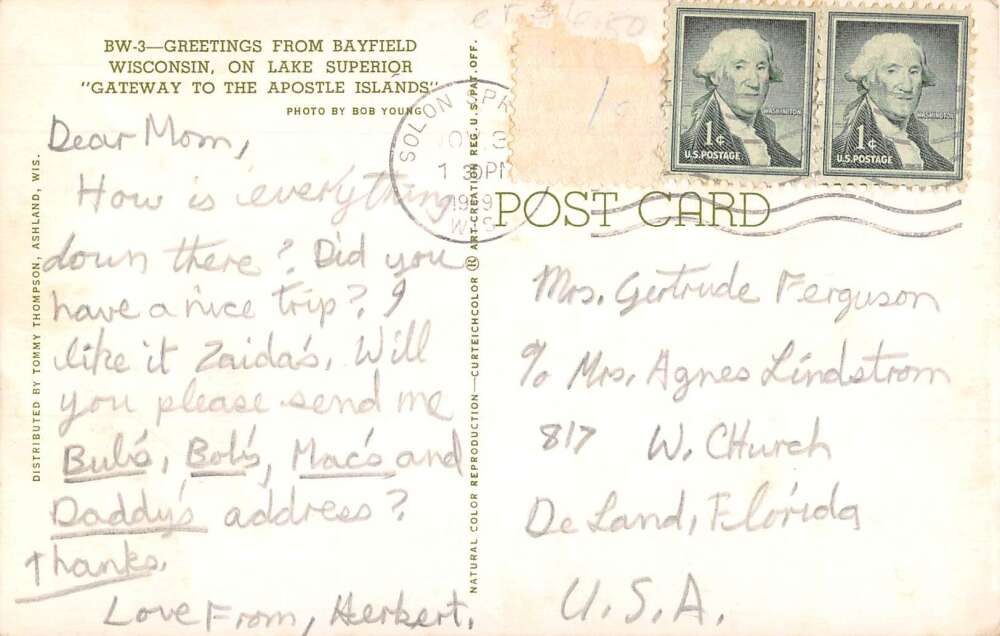 BW-3—GREETINGS FROM BAYFIELD
WISCONSIN, ON LAKE SUPERIOR
"GATEWAY TO THE APOSTLE ISLANDS"
PHOTO BY BOB YOUNG
Dear Mom,
How is everything
down there? Did you
have a nice trip? I
like it Zaida's. Will
you please send me
Bub's, Bob's, Mac's and
Daddy's address?
Thanks.
Love From, Herbert.
DISTRIBUTED BY TOMMY THOMPSON, ASHLAND, WIS.
NATURAL COLOR REPRODUCTION—CURTEICHCOLOR ® ART-CREATION REG. U.S. PAT. OFF.
SOLON SPR
1 30PM
WIS
WASHINGTON
1¢
U.S. POSTAGE
WASHINGTON
1¢
U.S. POSTAGE
POST CARD
Mrs. Gertrude Ferguson
℅ Mrs. Agnes Lindstrom
817 W. CHurch
De Land, Florida
U.S.A.